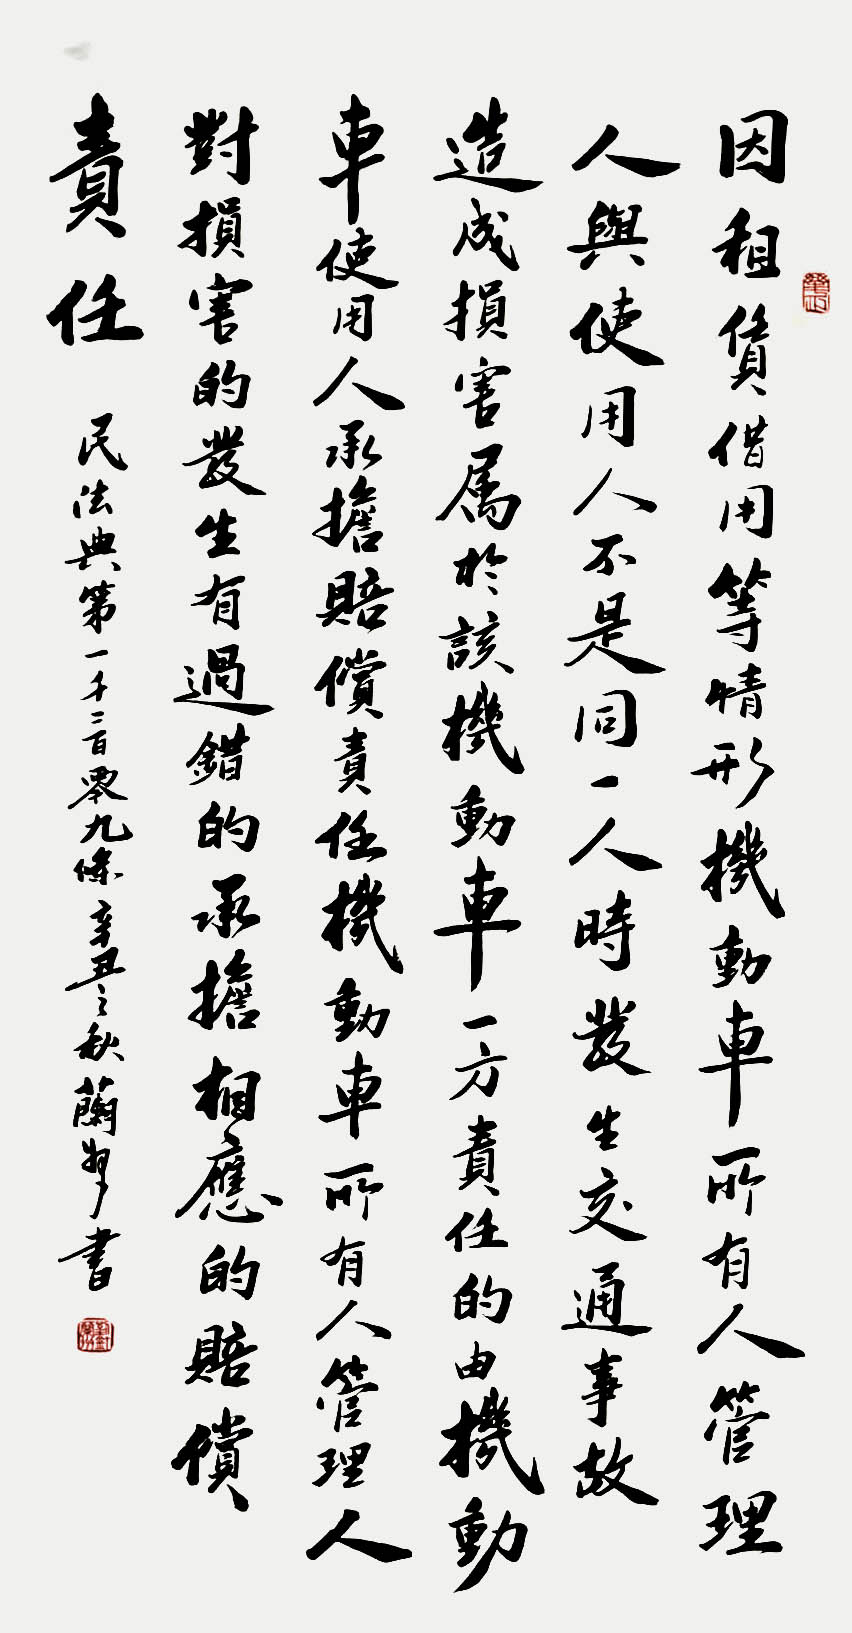 因租賃借用等情形機動車所有人管理
人與使用人不是同一人時發生交通事故
造成損害属於該機動車一方責任的由機動
車使用人承擔賠償責任機動車所有人管理人
對損害的發生有過錯的承擔相應的賠償
責任
民法典第一千二百零九條辛丑之秋蘭書